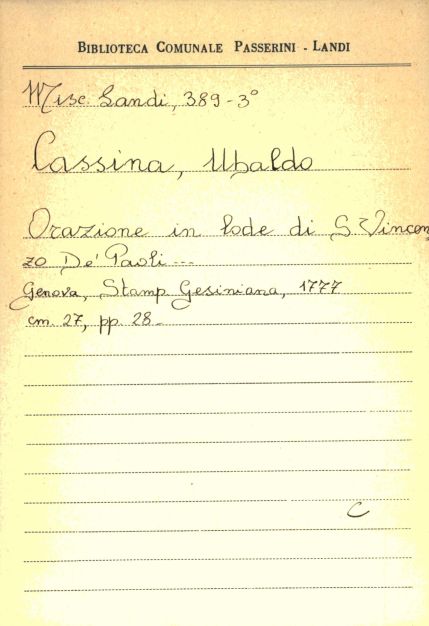 BIBLIOTECA COMUNALE PASSERINI - LANDI
Misc. Landi, 389-3°
Cassina, Ubaldo
Orazione in lode di S. Vincen
zo De' Paoli ---
Genova, Stamp Gesiniana, 1777
cm. 27, pp. 28-
C